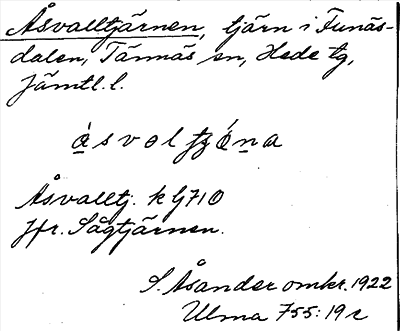 Åsvalltjärnen, tjärn i Funäs-
dalen, Tännäs sn, Hede tg,
Jämtl. l.
Åsvalltj. k G710
Jfr. Sågtjärnen.
S. Åsander omkr. 1922
Ulma 755:19 c